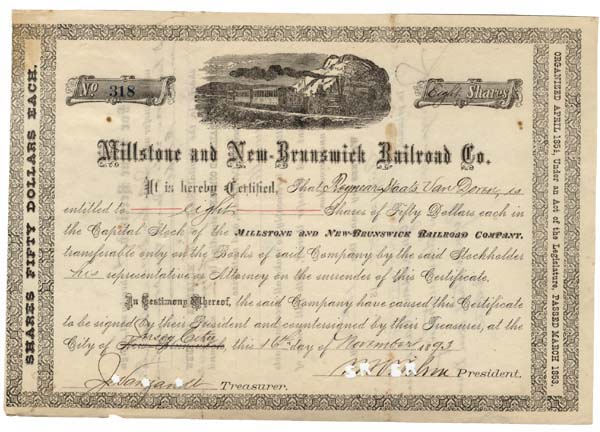 SHARES FIFTY DOLLARS EACH.
No 318
Eight Shares
Millstone and New-Brunswick Railroad Co.
It is hereby Certified, That Reynier Staats Van Doren, is
entitled to eight Shares of Fifty Dollars each in
the Capital Stock of the MILLSTONE AND NEW-BRUNSWICK RAILROAD COMPANY,
transferable only on the Books of said Company by the said Stockholder
his representative or Attorney on the surrender of this Certificate.
In Testimony Whereof, the said Company have caused this Certificate
to be signed by their President and countersigned by their Treasurer, at the
Jersey City
City of New Brunswick, this 16th day of November 1893
President.
Treasurer.
ORGANIZED APRIL 1854, Under an Act of the Legislature, PASSED MARCH 1853.